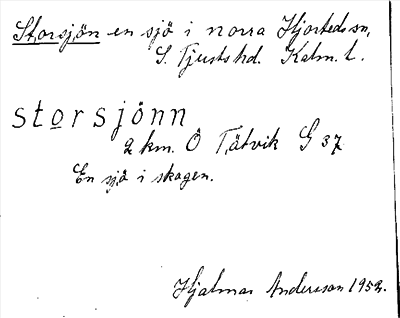 Storsjön en sjö i norra Hjorteds sn,
S. Tjusts hd. Kalm. l.
storsjönn
2 km. Ö Tätvik G 37
En sjö i skogen.
Hjalmar Andersson 1952.